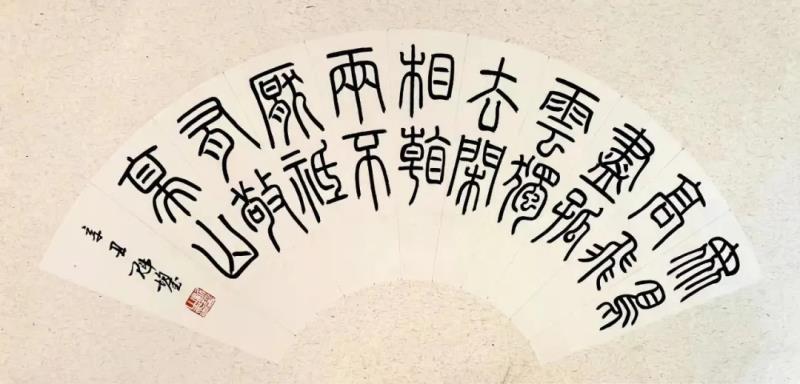 眾鳥
高飛
盡孤
雲獨
去閑
相看
兩不
厭祗
有敬
亭山
辛丑